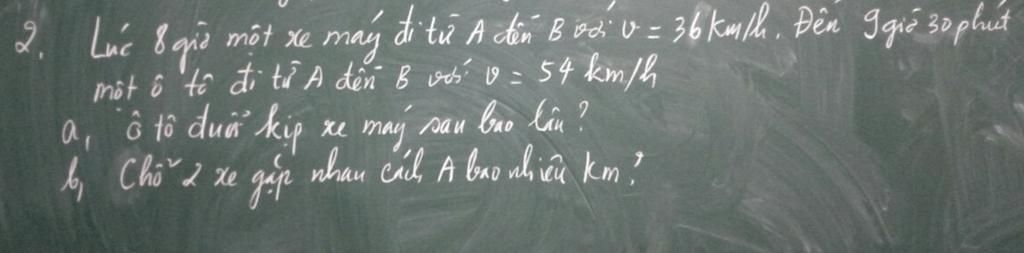 2. Lúc 8 giờ một xe máy đi từ A đến B với v = 36 km/h. Đến 9 giờ 30 phút
một ô tô đi từ A đến B với v = 54 km/h
a, ô tô đuổi kịp xe máy sau bao lâu?
b, Chỗ 2 xe gặp nhau cách A bao nhiêu km?